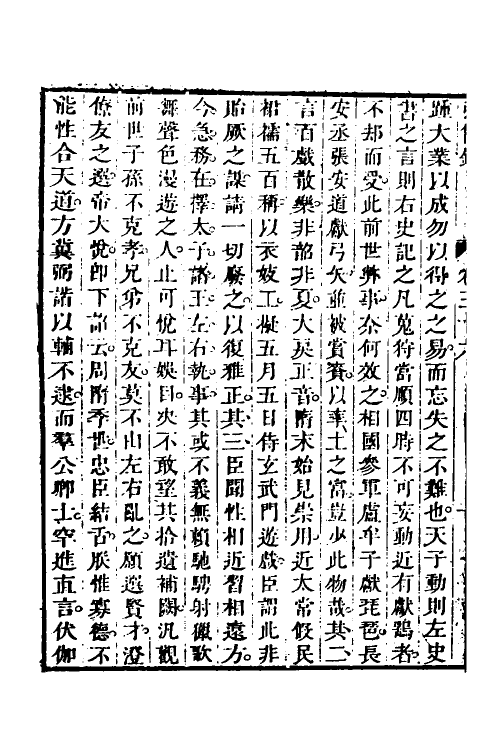 踵大業以成勿以得之之易而忘失之不難也天子動則左史
書之言則右史記之凡蒐狩當順四時不可妄動近有獻鷂者
不却而受此前世弊事奈何效之相國參軍盧牟子獻琵琶長
安丞張安道獻弓矢並被賞賚以率土之富豈少此物哉其二
言百戲散樂非韶非夏大臭正音隋末始見崇用近太常假民
裙襦五百稱以衣妓工擬五月五日侍玄武門遊戲臣謂此非
貽厥之謀請一切廢之以復雅正其三臣聞性相近習相遠方
今急務在擇太子諸王左右執事其或不義無賴馳騁射獵歌
舞聲色漫遊之人止可悅耳娛目決不敢望其拾遺補闕汎觀
前世子孫不克孝兄弟不克友莫不由左右亂之願選賢才澄
僚友之選帝大悅卽下詔云周隋季世忠臣結舌朕惟寡德不
能性合天道方冀弼諧以輔不逮而羣公卿士罕進直言伏伽